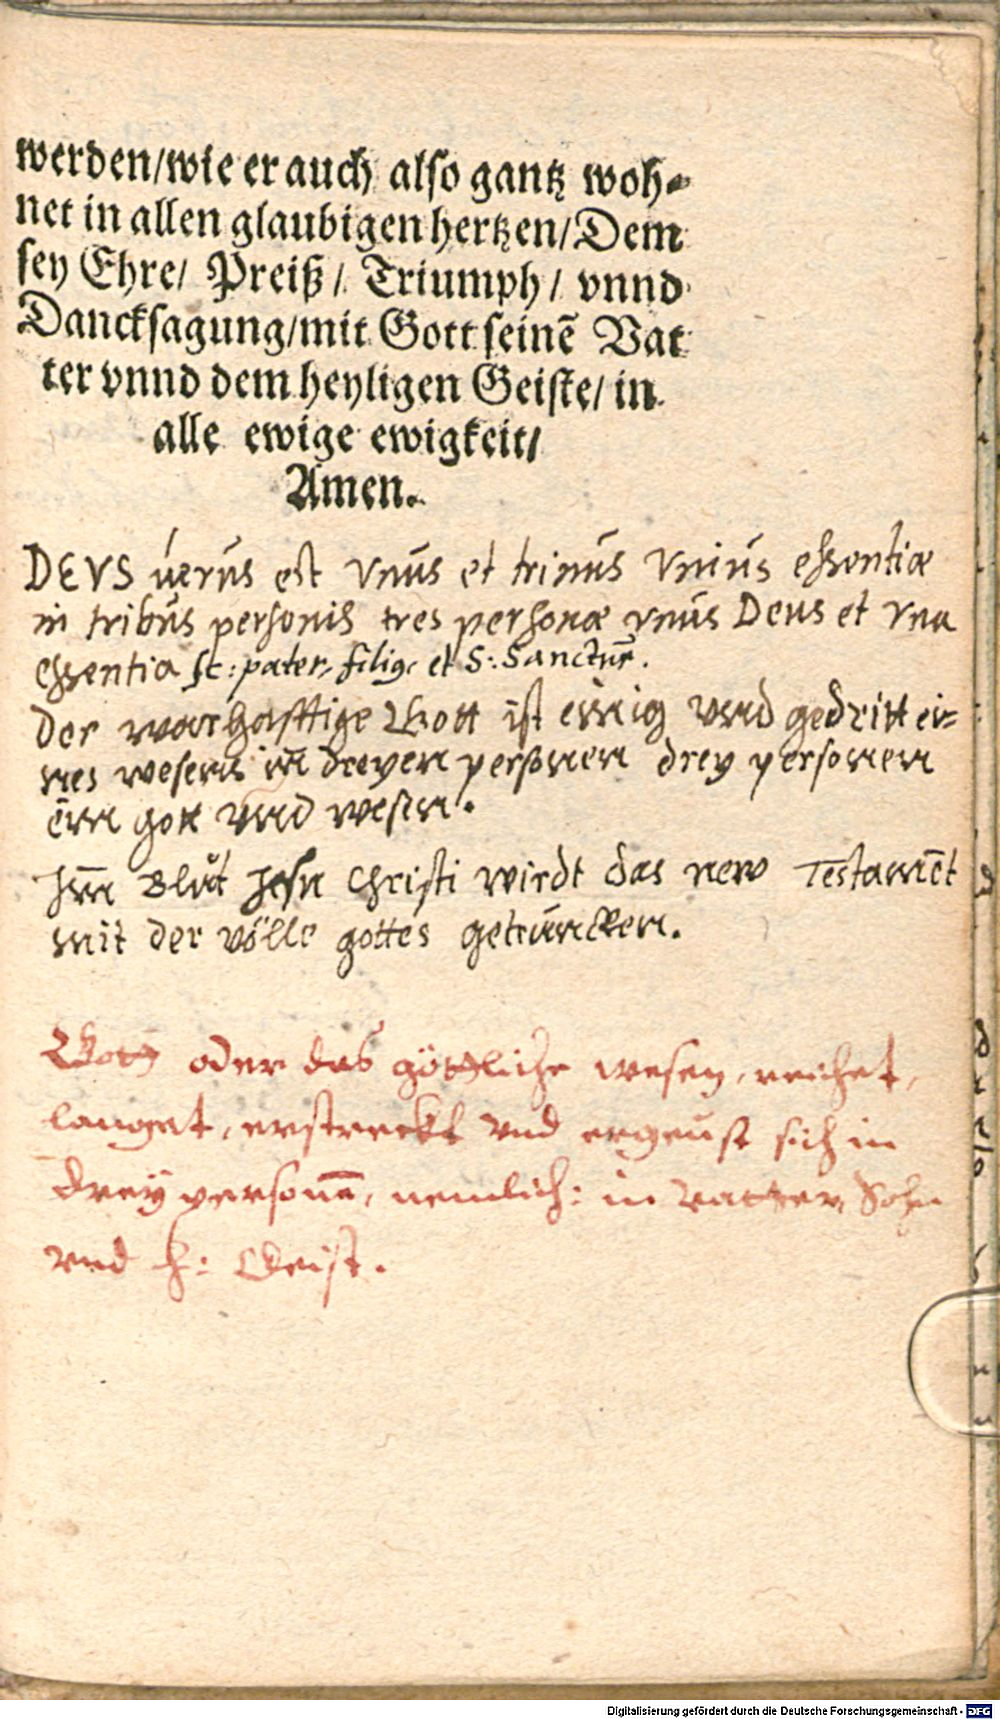 werden/wie er auch also gantz woh⸗
net in allen glaubigen hertzen/Dem
sey Ehre/ Preiß/ Triumph/ vnnd
Dancksagung/mit Gott seinē Vat
ter vnnd dem heyligen Geiste/ in
alle ewige ewigkeit/
Amen.
DEVS verus est vnus et trinus vnius essentiæ
in tribus personis tres personæ vnus Deus et vna
essentia sc: pater, filiꝰ, et S: Sanctus.
Der warhafftige Gott ist einig vnd gedritt ei⸗
nes wesens in dreyen personen drey personen
ein gott vnd wesen.
Im Blut Jesu Christi wirdt das new Testamēt
mit der völle gottes getruncken.
Gott oder das göttliche wesen, reichet,
langet, erstreckt vnd ergeust sich in
drey personē, nemlich: in vatter, Sohn
vnd h: Geist.
Digitalisierung gefördert durch die Deutsche Forschungsgemeinschaft - DFG